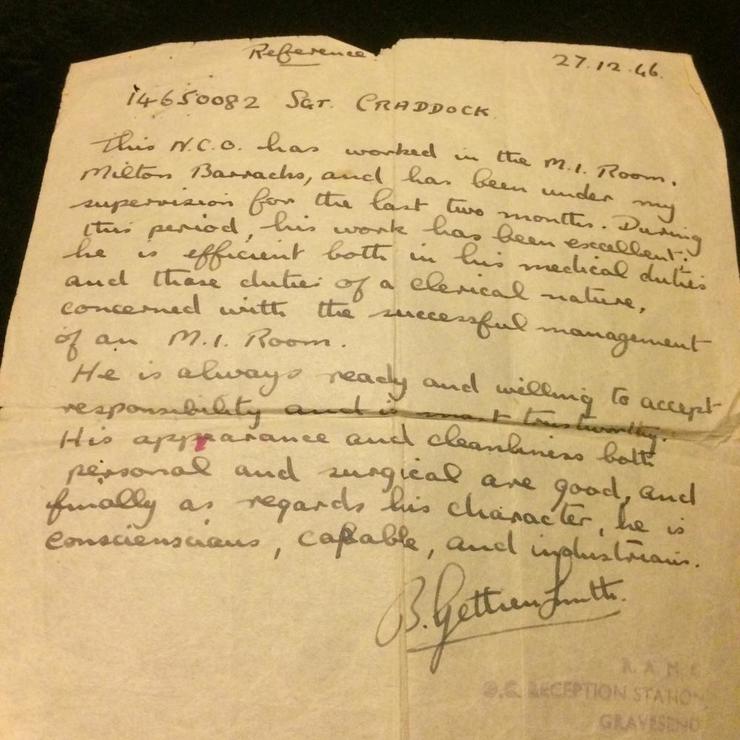 Reference.
27.12.46.
14650082 SGT. CRADDOCK
This N.C.O. has worked in the M.I. Room,
Milton Barracks, and has been under my
supervision for the last two months. During
this period, his work has been excellent;
he is efficient both in his medical duties
and those duties of a clerical nature,
concerned with the successful management
of an M.I. Room.
He is always ready and willing to accept
responsibility and is most trustworthy.
His appearance and cleanliness both
personal and surgical are good, and
finally as regards his character, he is
conscienscious, capable, and industrious.
B. Smith.
R.A.M.C.
RECEPTION STATION
GRAVESEND